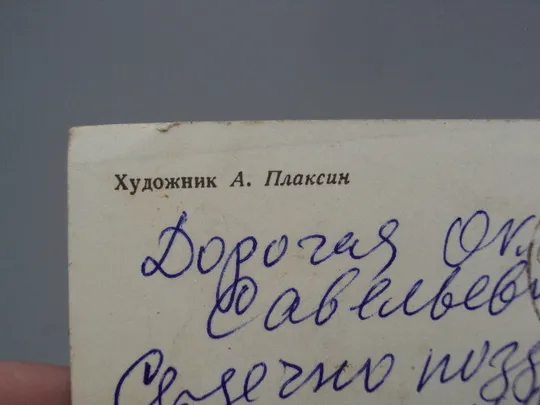 Художник А. Плаксин
Дорогая Ок
Савельев
Сердечно поз